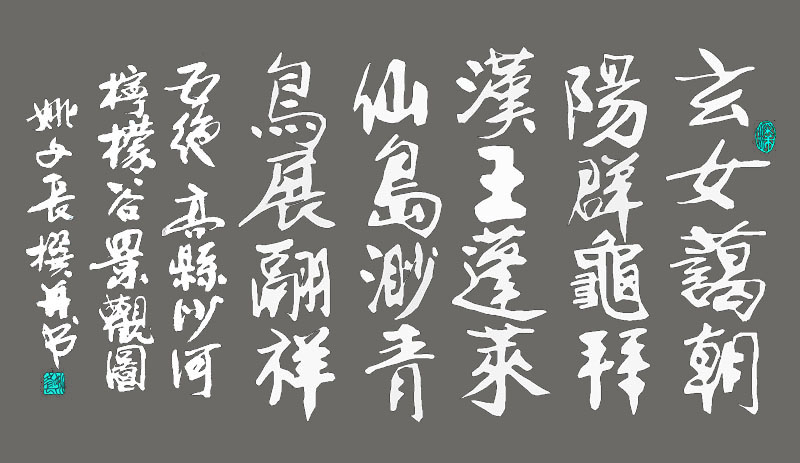 玄女藹朝
陽群龜拜
漢王蓬萊
仙島渺青
鳥展翮祥
五絕 高縣沙河
檸檬谷景觀圖
姚文長撰并书